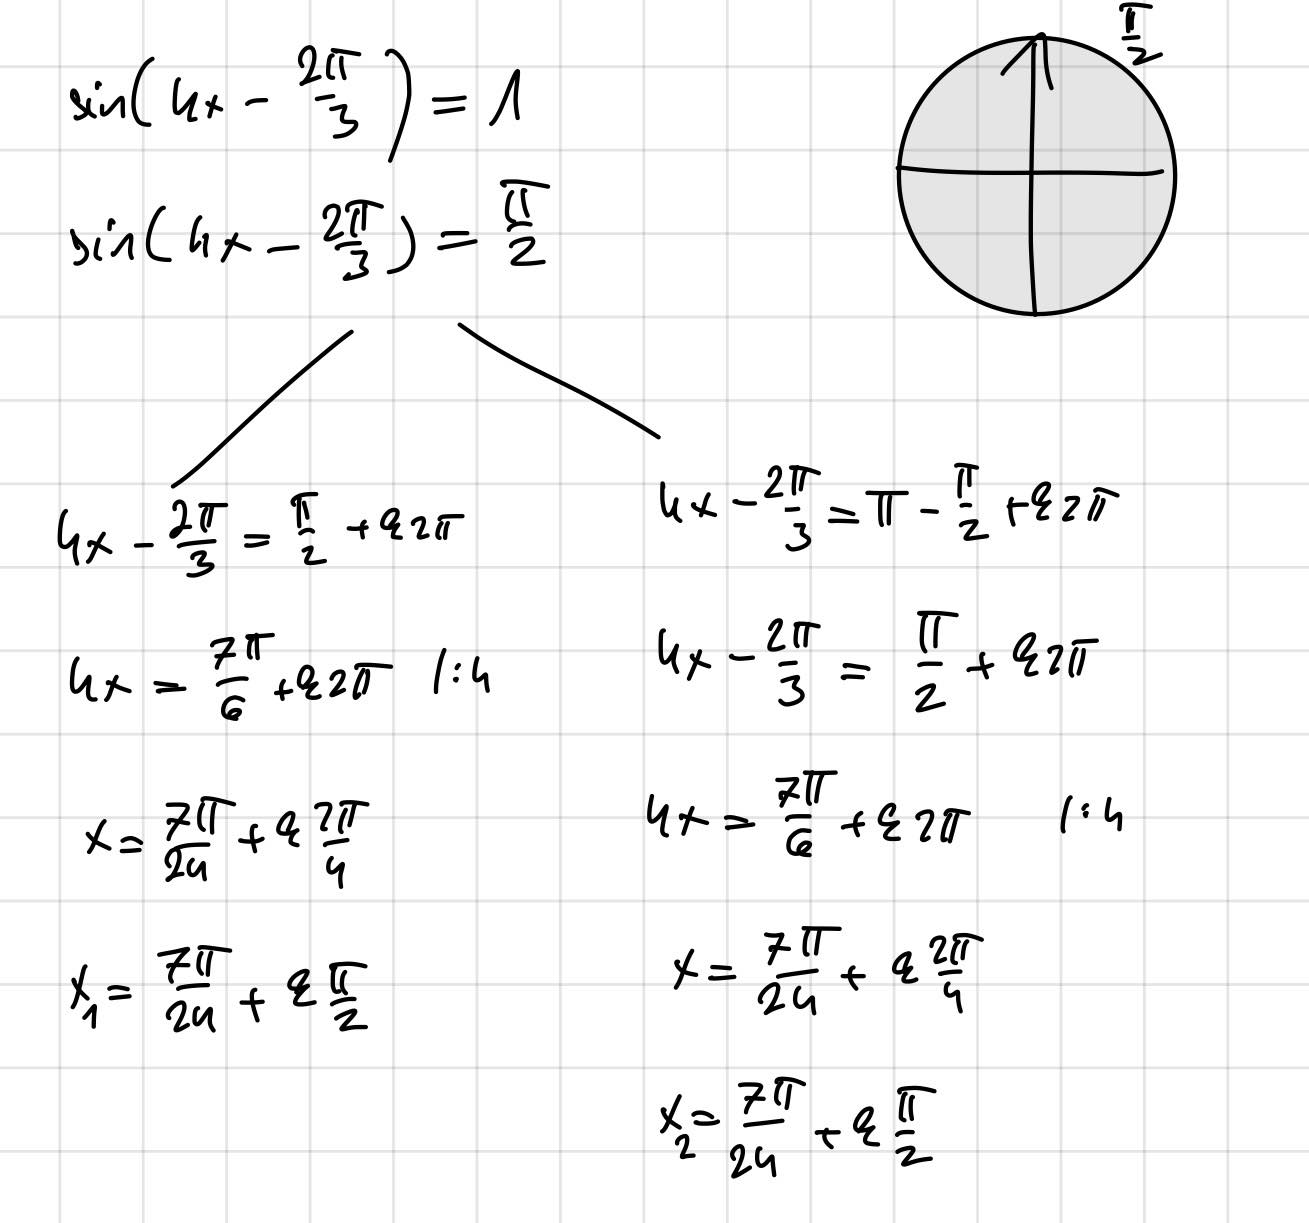 sin(4x - 2π/3) = 1
π/2
sin(4x - 2π/3) = π/2
4x - 2π/3 = π/2 + k2π
4x = 7π/6 + k2π /:4
x = 7π/24 + k 2π/4
x₁ = 7π/24 + k π/2
4x - 2π/3 = π - π/2 + k2π
4x - 2π/3 = π/2 + k2π
4x = 7π/6 + k2π /:4
x = 7π/24 + k 2π/4
x₂ = 7π/24 + k π/2